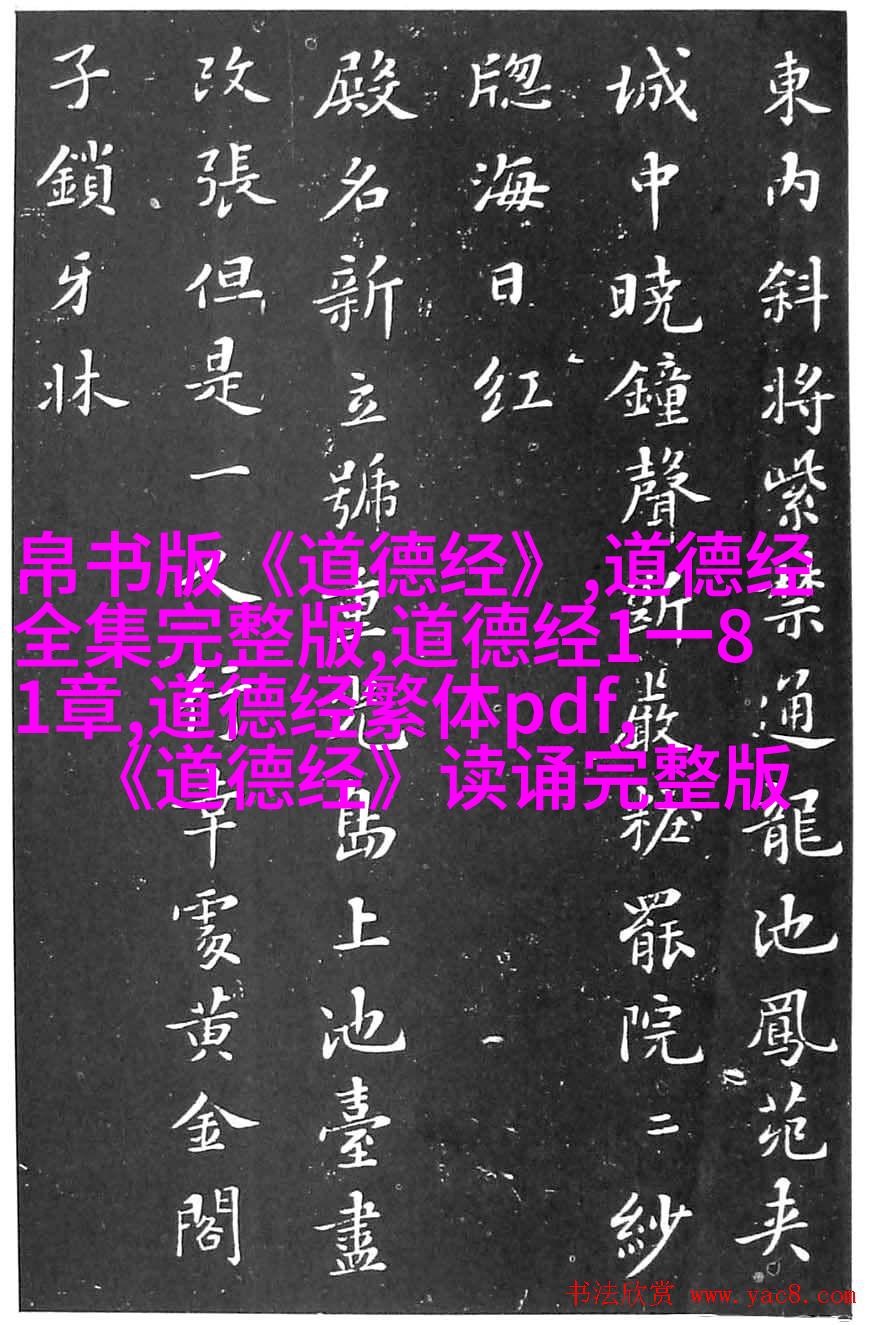 東内斜将紫禁通龍池鳳苑夾
城中暁鐘聲斷嚴粧罷院二紗
牕海日红
殿名新立號重光島上池臺盡
改張但是一人行幸處黄金閣
子鎖牙牀
帛书版《道德经》,道德经
全集完整版,道德经1一8
1章,道德经繁体pdf,
《道德经》读诵完整版
书法欣赏 www.yac8.com